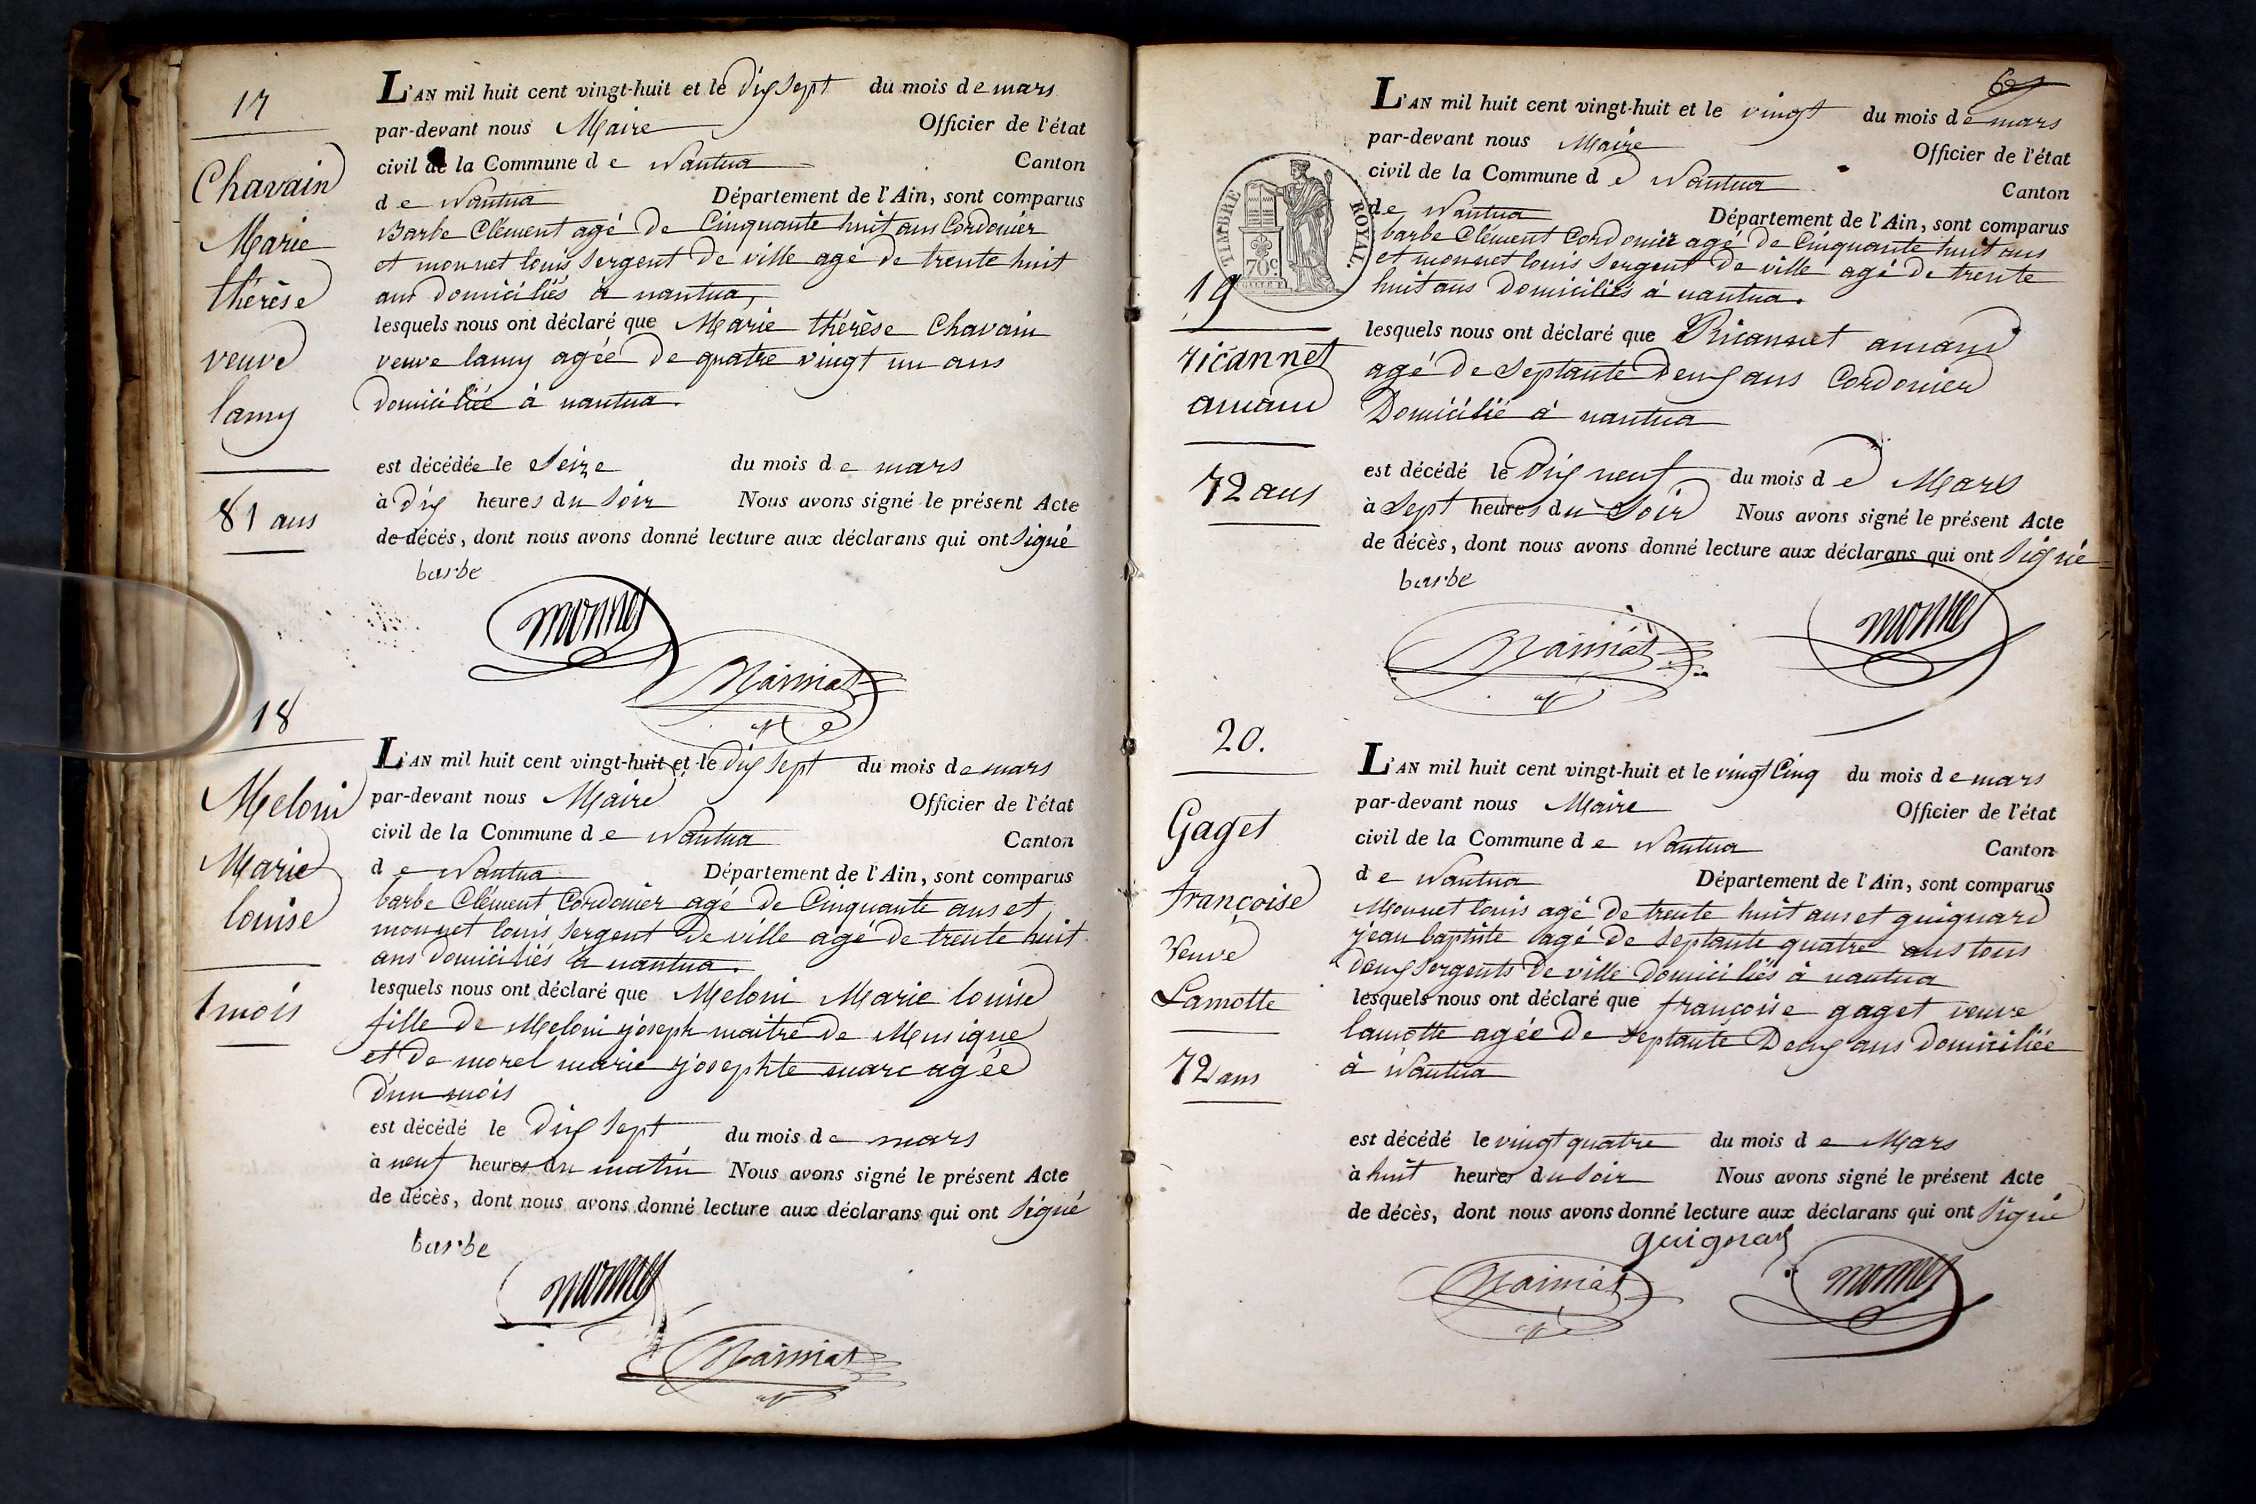 17
Chavain
Marie
thérèse
veuve
lamy
81 ans
L'AN mil huit cent vingt-huit et le dix sept du mois de mars
par-devant nous Maire Officier de l'état
civil de la Commune de Nantua Canton
de Nantua Département de l'Ain, sont comparus
Barbe Clément agé de Cinquante huit ans Cordonier
et monnet louis sergent de ville agé de trente huit
ans domiciliés à nantua,
lesquels nous ont déclaré que Marie thérèse Chavain
veuve lamy agée de quatre vingt un ans
domiciliée à nantua.
est décédée le Seize du mois de mars
à dix heures du soir Nous avons signé le présent Acte
de décés, dont nous avons donné lecture aux déclarans qui ont signé
barbe
monnet
18
Meloni
Marie
louise
1 mois
L'AN mil huit cent vingt-huit et le dix sept du mois de mars
par-devant nous Maire Officier de l'état
civil de la Commune de Nantua Canton
de Nantua Département de l'Ain, sont comparus
barbe Clément Cordonier agé de Cinquante ans et
monnet louis sergent de ville agé de trente huit
ans domiciliés à nantua.
lesquels nous ont déclaré que Meloni Marie louise
fille de Meloni joseph maitre de Musique
et de morel marie josephte marc agée
d'un mois
est décédé le dix sept du mois de mars
à neuf heures du matin Nous avons signé le présent Acte
de décès, dont nous avons donné lecture aux déclarans qui ont signé
barbe
monnet
TIMBRE ROYAL.
70c
19
ricannet
amand
72 ans
L'AN mil huit cent vingt-huit et le vingt du mois de mars
par-devant nous Maire Officier de l'état
civil de la Commune de Nantua Canton
de Nantua Département de l'Ain, sont comparus
barbe Clément Cordonier agé de Cinquante huit ans
et monnet louis sergent de ville agé de trente
huit ans domiciliés à nantua.
lesquels nous ont déclaré que Ricannet amand
agé de septante deux ans Cordonier
Domicilié à nantua
est décédé le dix neuf du mois de Mars
à sept heures du soir Nous avons signé le présent Acte
de décès, dont nous avons donné lecture aux déclarans qui ont signé
barbe
monnet
20.
Gaget
françoise
veuve
Lamotte
72 ans
L'AN mil huit cent vingt-huit et le vingt cinq du mois de mars
par-devant nous Maire Officier de l'état
civil de la Commune de Nantua Canton
de Nantua Département de l'Ain, sont comparus
Monnet louis agé de trente huit ans et guignard
jean baptiste agé de septante quatre ans tous
deux sergents de ville domiciliés à nantua
lesquels nous ont déclaré que françoise gaget veuve
lamotte agée de septante Deux ans domiciliée
à Nantua
est décédé le vingt quatre du mois de Mars
à huit heures du soir Nous avons signé le présent Acte
de décès, dont nous avons donné lecture aux déclarans qui ont signé
guignard
monnet